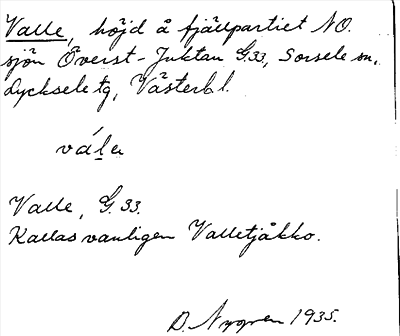 Valle, höjd å fjällpartiet NO.
sjön Överst-Juktan G.33, Sorsele sn,
Lycksele tg, Västerb l.
válea
Valle, G. 33.
Kallas vanligen Valletjåkko.
D. Nygren 1935.